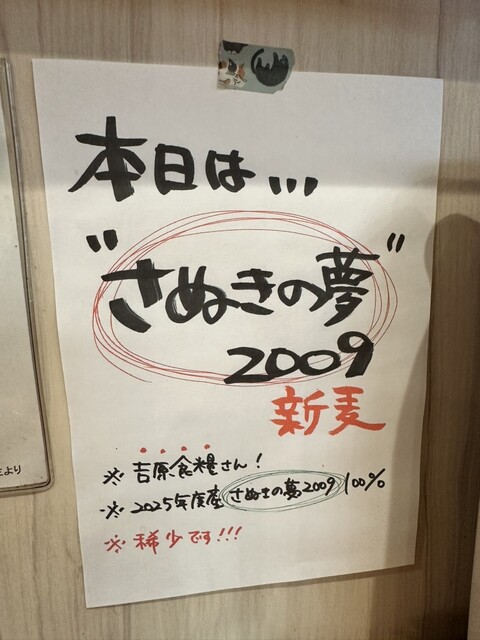 本日は...
"さぬきの夢"
2009
新麦
※ 吉原食糧さん!
※ 2025年度産 さぬきの夢2009 100%
※ 稀少です!!!
より